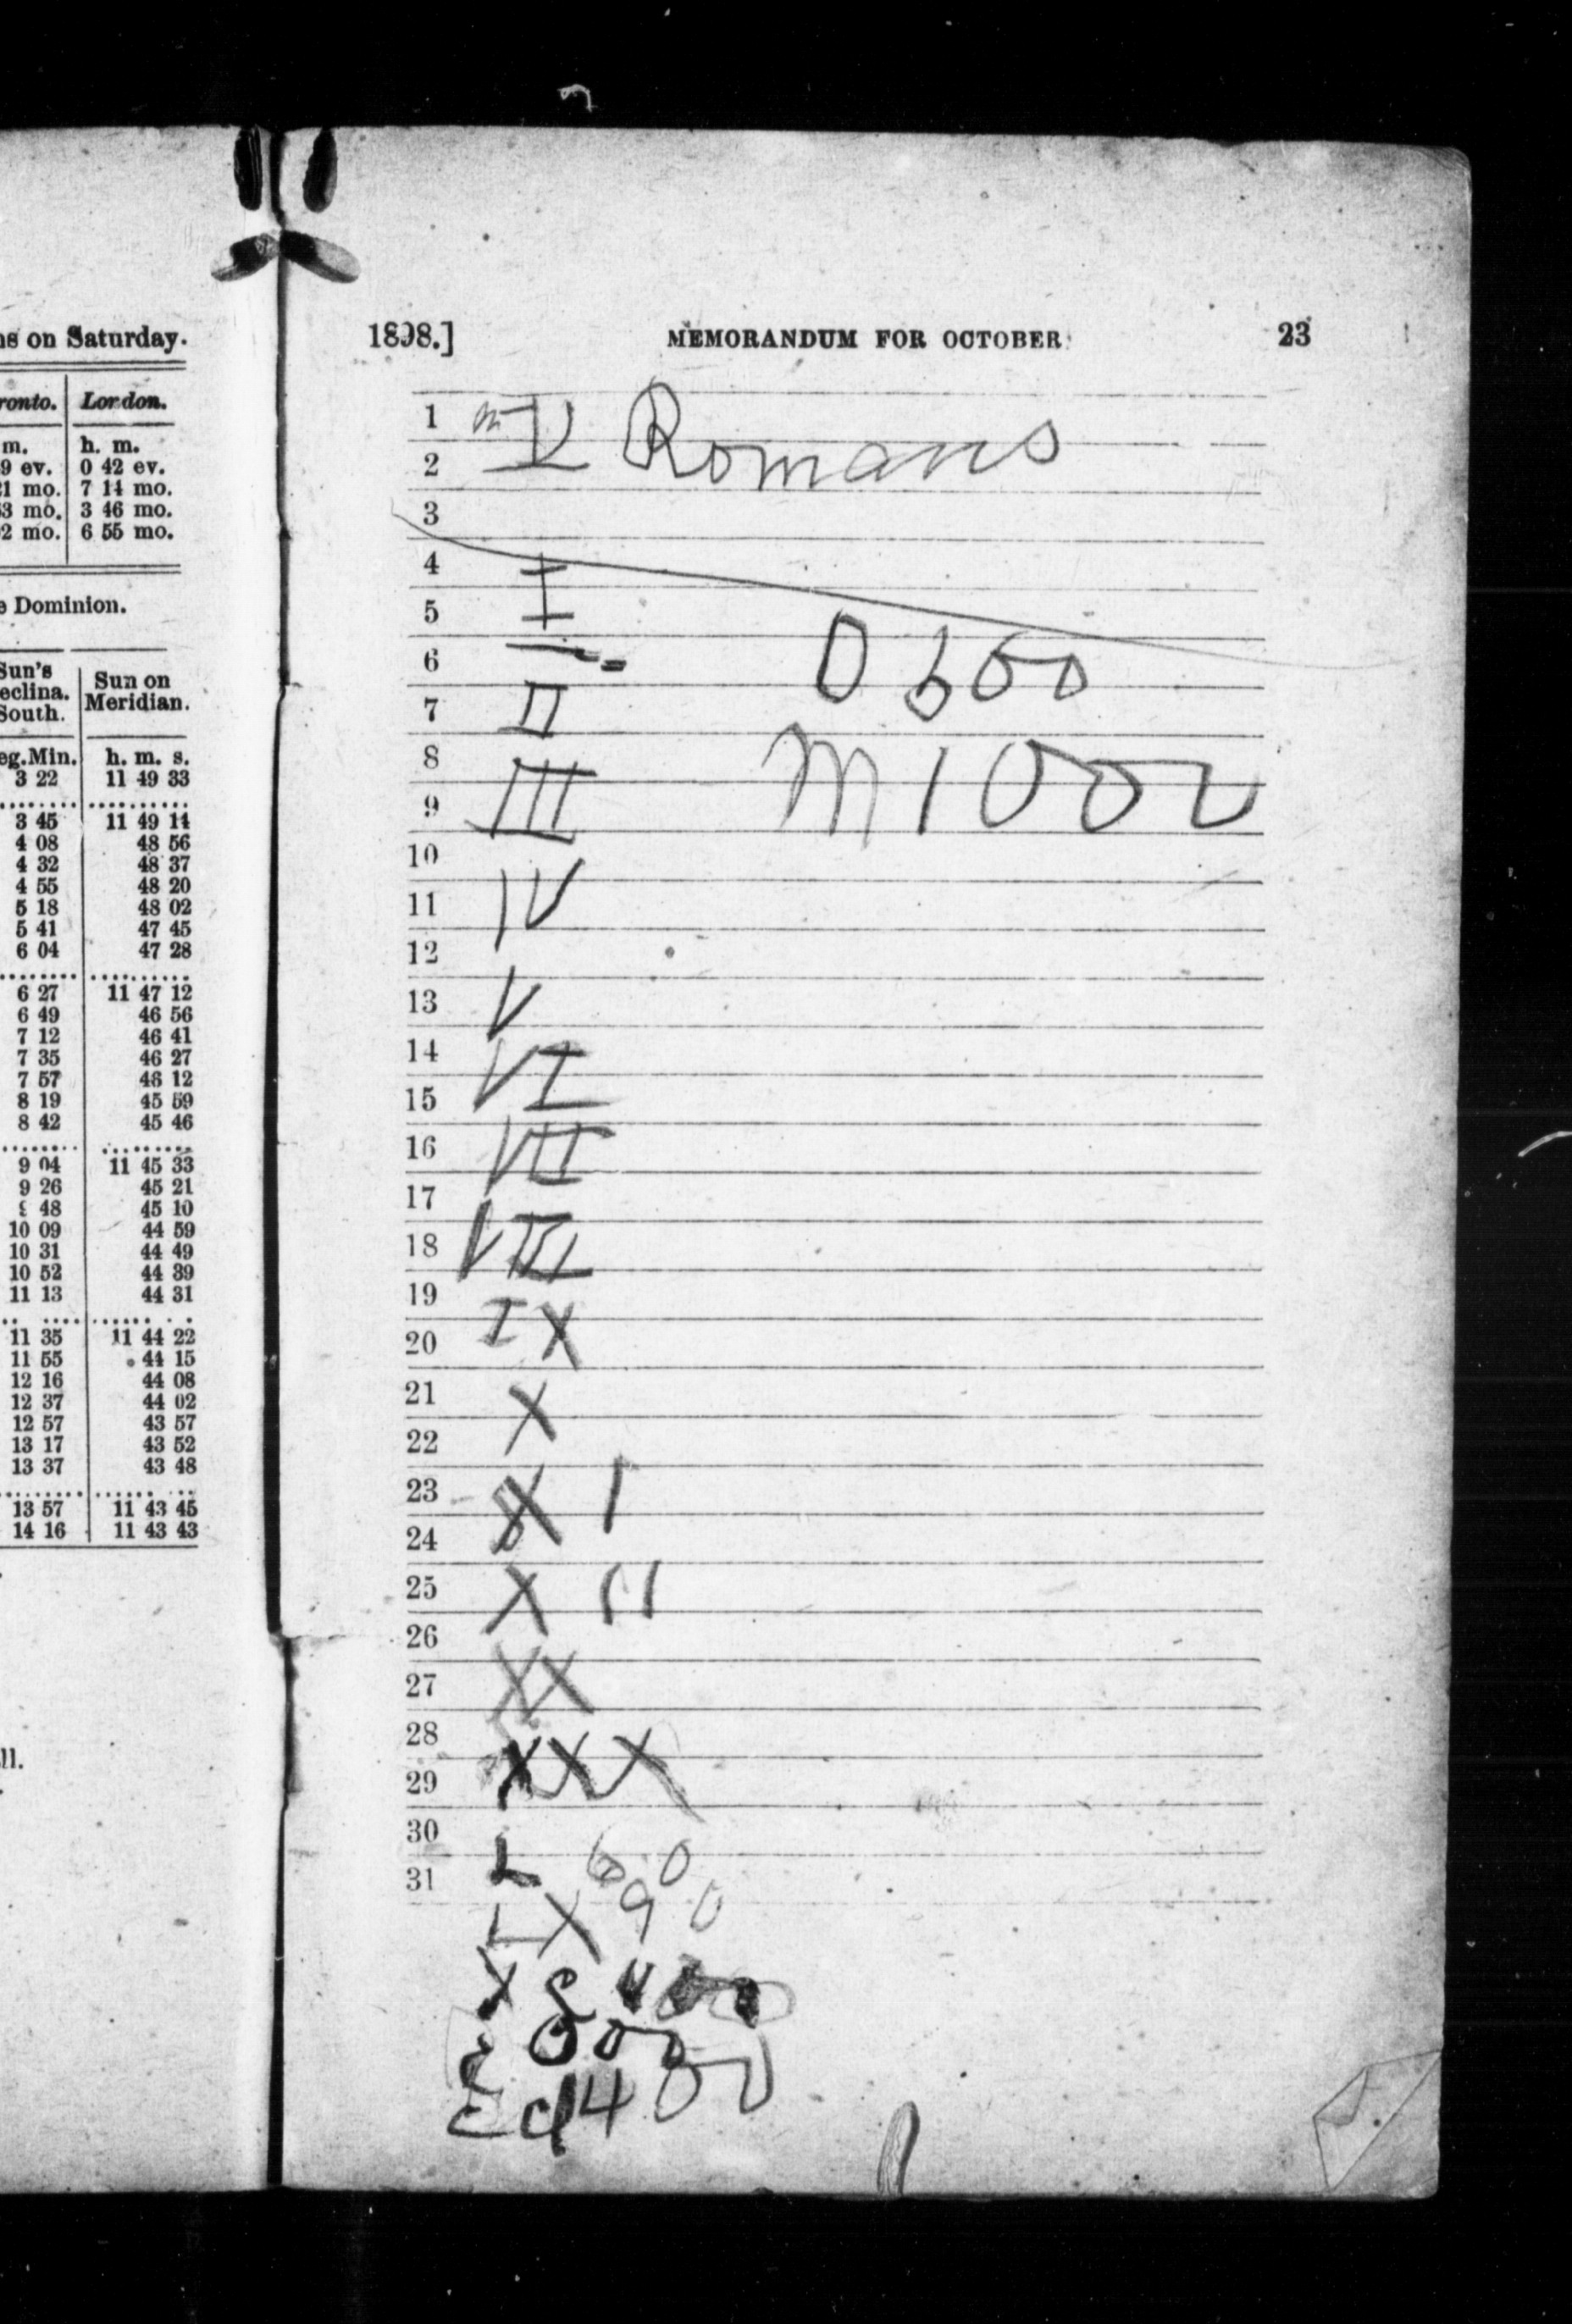 ns on Saturday.
ronto. London.
m. h. m.
9 ev. 0 42 ev.
21 mo. 7 14 mo.
53 mo. 3 46 mo.
2 mo. 6 55 mo.
e Dominion.
Sun's
eclina.
South.
Sun on
Meridian.
eg.Min. h. m. s.
3 22 11 49 33
3 45 11 49 14
4 08 48 56
4 32 48 37
4 55 48 20
5 18 48 02
5 41 47 45
6 04 47 28
6 27 11 47 12
6 49 46 56
7 12 46 41
7 35 46 27
7 57 46 12
8 19 45 59
8 42 45 46
9 04 11 45 33
9 26 45 21
9 48 45 10
10 09 44 59
10 31 44 49
10 52 44 39
11 13 44 31
11 35 11 44 22
11 55 44 15
12 16 44 08
12 37 44 02
12 57 43 57
13 17 43 52
13 37 43 48
13 57 11 43 45
14 16 11 43 43
ll.
1898.] MEMORANDUM FOR OCTOBER 23
1
2 V Romans
3
4
5 I
6
7 II
8
9 III M 1000
10
11 IV
12
13 V
14
15 VI
16 VII
17
18 VIII
19
20 IX
21 X
22
23 X I
24
25 X II
26
27 XX
28
29 XXX
30
31 L
LX